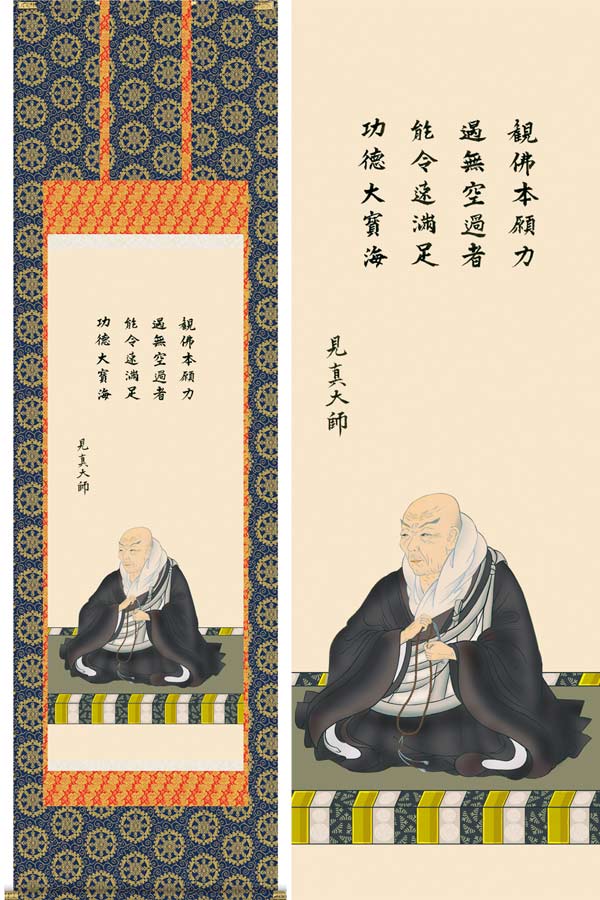 觀佛本願力
遇無空過者
能令速滿足
功德大寶海
見真大師
觀佛本願力
遇無空過者
能令速滿足
功德大寶海
見真大師